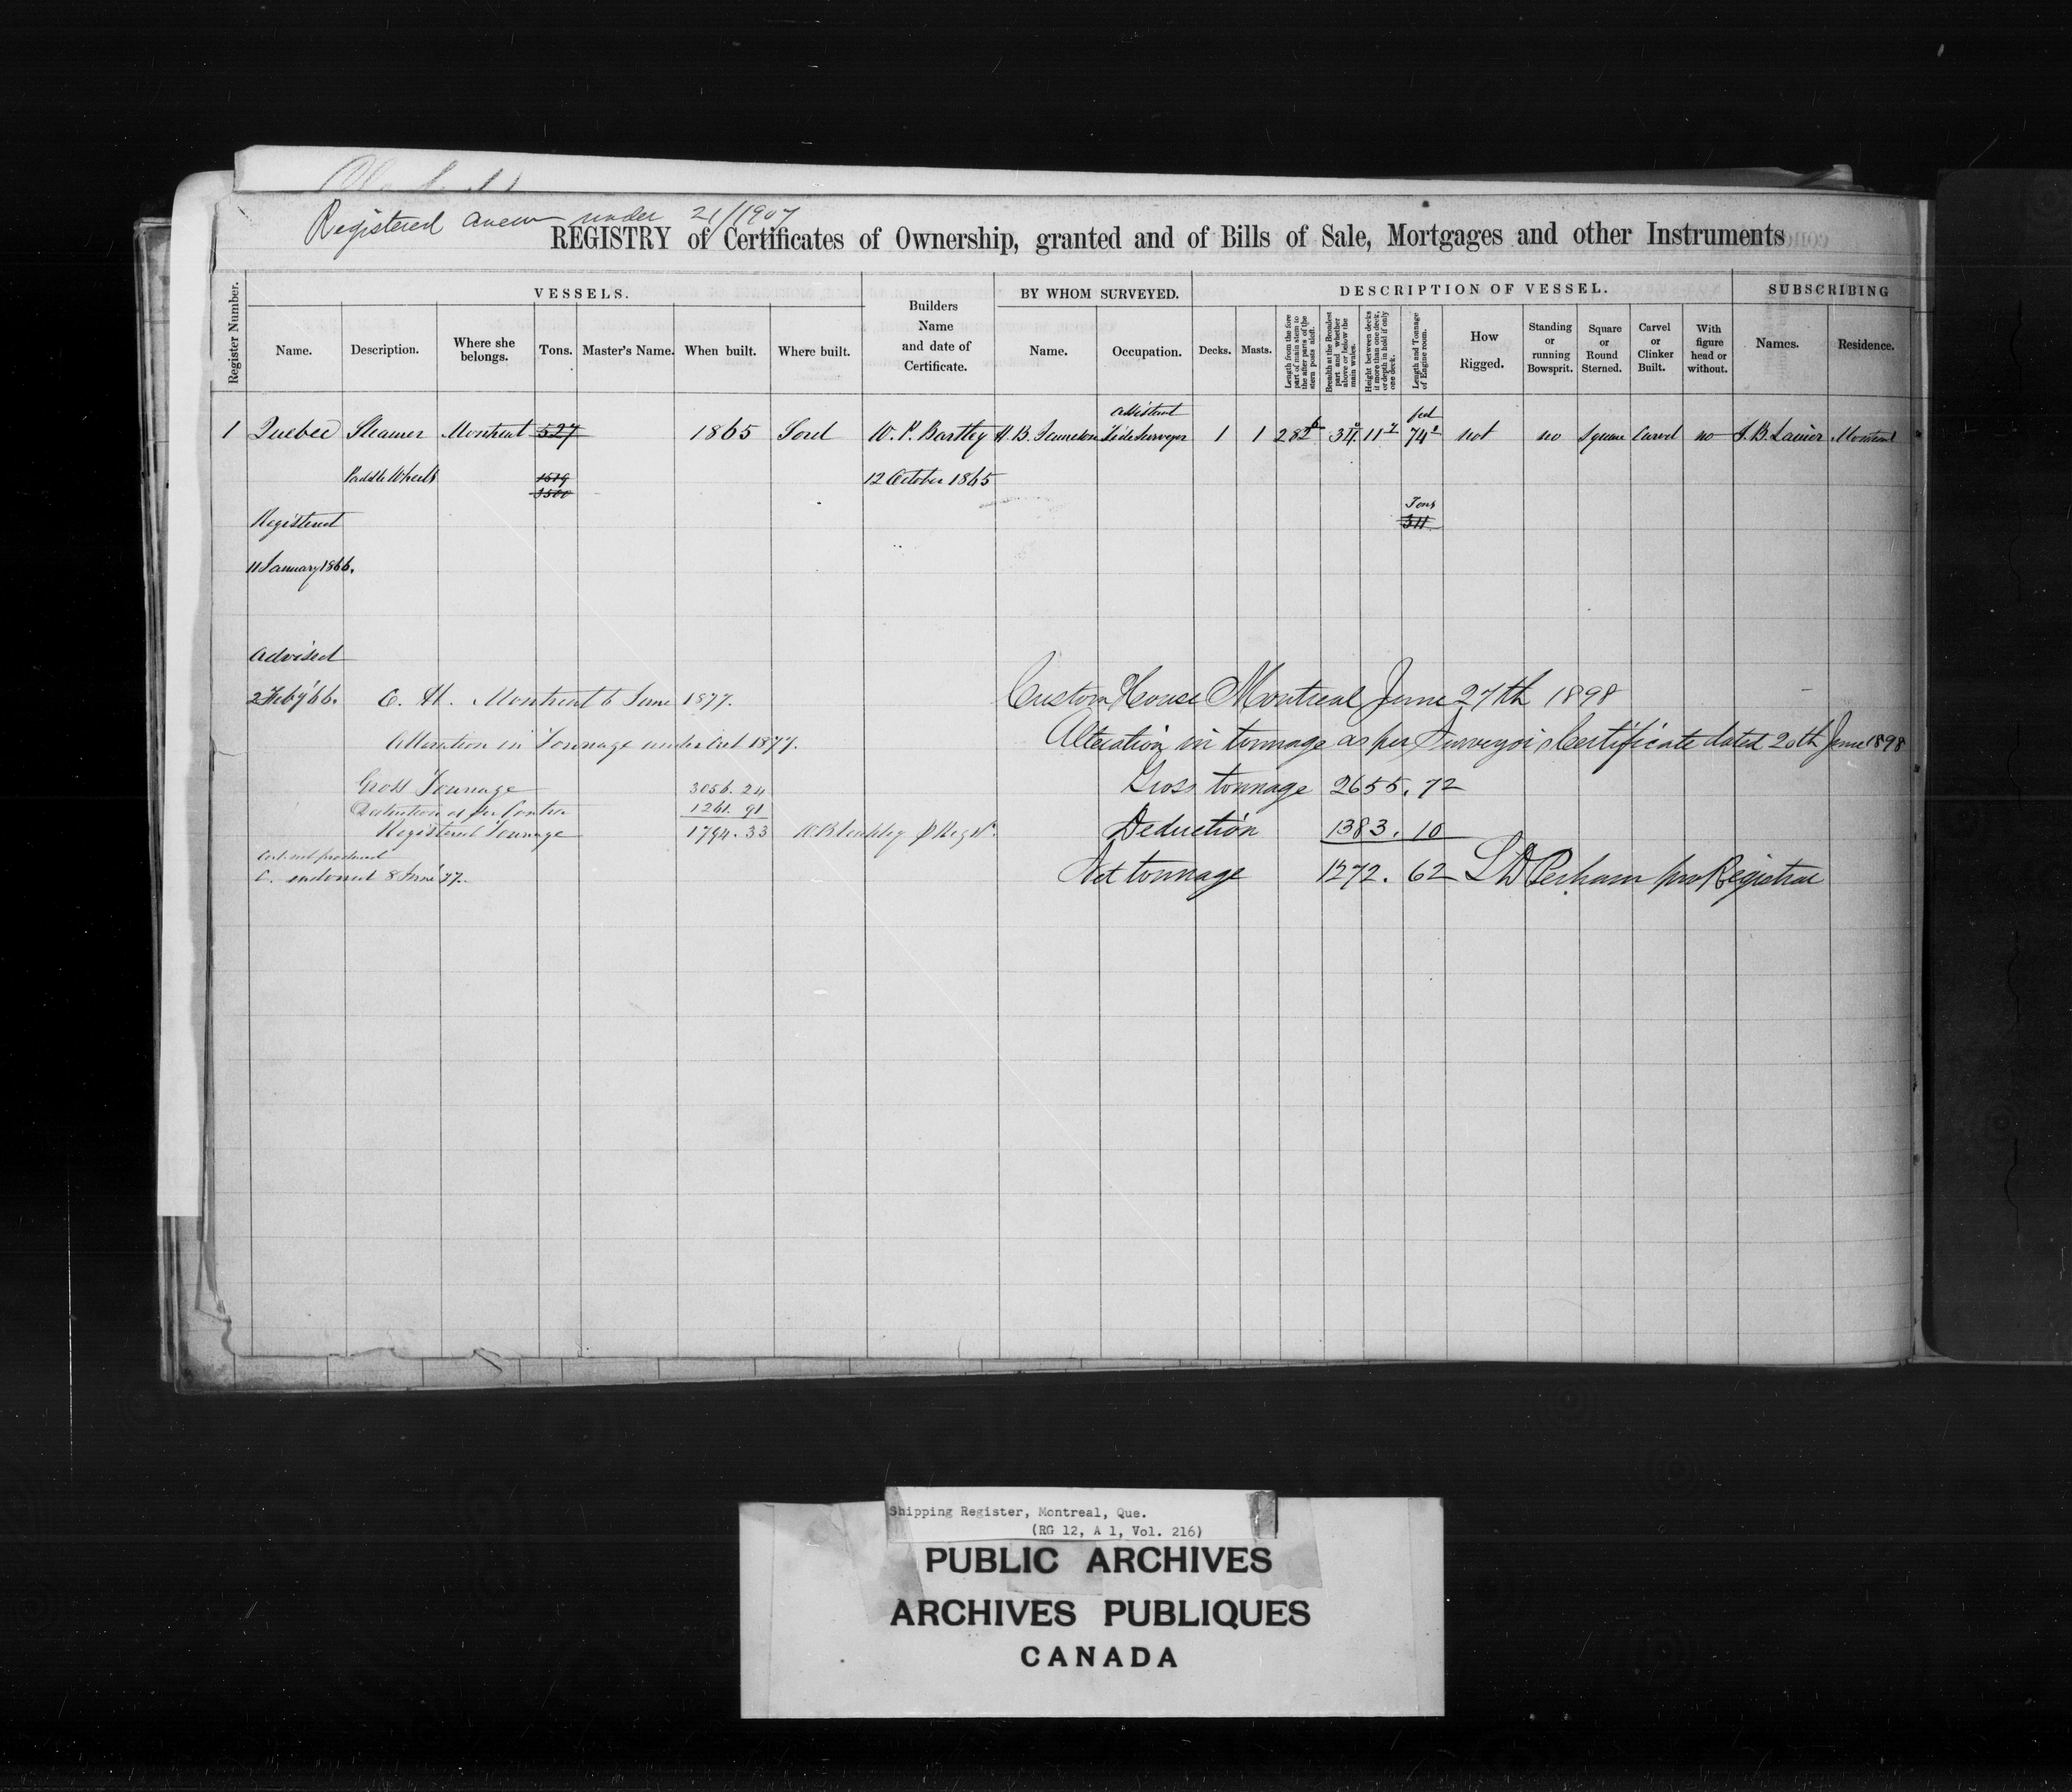 Registered anew under 21/1907
REGISTRY of Certificates of Ownership, granted and of Bills of Sale, Mortgages and other Instruments
Register Number.
VESSELS.
Name.
Description.
Where she belongs.
Tons.
Master's Name.
When built.
Where built.
Builders Name and date of Certificate.
BY WHOM SURVEYED.
Name.
Occupation.
DESCRIPTION OF VESSEL.
Decks.
Masts.
Length from the fore part of main stem to the after parts of the stern posts aloft.
Breadth at the Broadest part and whether above or below the main wales.
Height between decks if more than one deck, or depth in hold if only one deck.
Length and Tonnage of Engine room.
How Rigged.
Standing or running Bowsprit.
Square or Round Sterned.
Carvel or Clinker Built.
With figure head or without.
SUBSCRIBING
Names.
Residence.
assistant feet
1 Quebec Steamer Montreal 527 1865 Sorel W. P. Bartley H. B. Tide Surveyor 1 1 282 34 11 74 not no Square Carvel no J. B. Montreal
Paddle Wheels 12 October 1865
1579
Tons
Registered 311
11 January 1866.
Advised
2 Feby '66. C. H. Montreal 6 June 1877.
Alteration in Tonnage under Act 1877.
Gross Tonnage 3056.24
Deduction as per Contra 1261.91
Registered Tonnage 1794.33
Cert. not produced
C. endorsed 8 June '77.
Custom House Montreal June 27th 1898
Alteration in tonnage as per Surveyors Certificate dated 20th June 1898
Gross tonnage 2655.72
Deduction 1383.10
Net tonnage 1272.62 Perham pro Registrar
Shipping Register, Montreal, Que.
(RG 12, A 1, Vol. 216)
PUBLIC ARCHIVES
ARCHIVES PUBLIQUES
CANADA